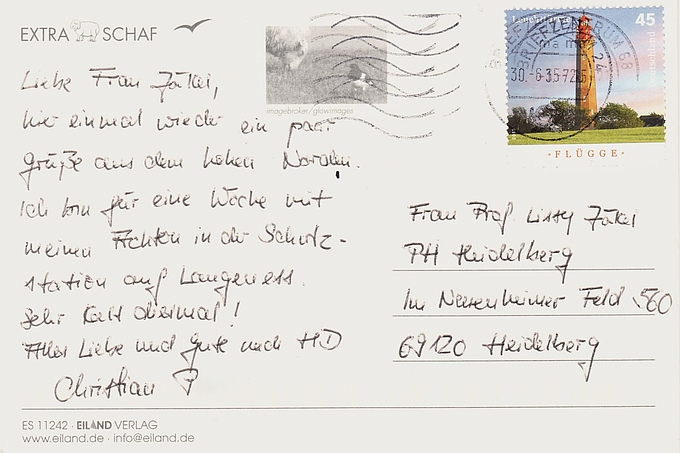 EXTRA SCHAF
Liebe Frau Jäkel,
hier einmal wieder ein paar
Grüße aus dem hohen Norden.
Ich bin für eine Woche mit
meinen Achten in der Schutz-
station auf Langeness.
Sehr kalt diesmal!
Alles Liebe und Gute nach HD
Christian P
ES 11242 · EILAND VERLAG
www.eiland.de · info@eiland.de
imagebroker/glowimages
BRIEFZENTRUM 68
45
Deutschland
·FLÜGGE·
Frau Prof. Lissy Jäkel
PH Heidelberg
Im Neuenheimer Feld 560
69120 Heidelberg